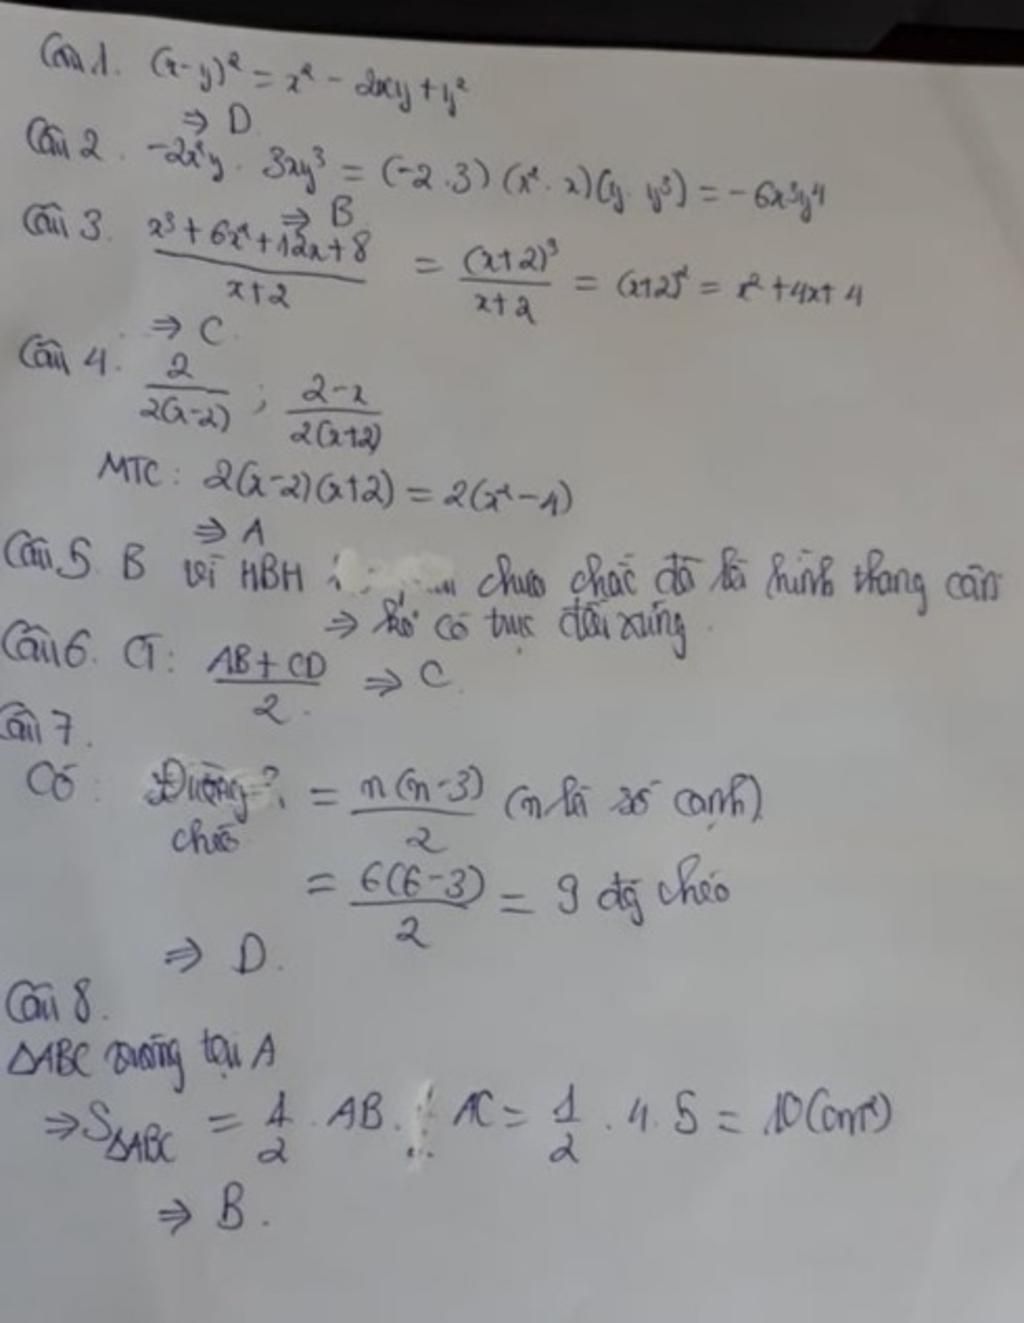 Câu 1. (x-y)² = x² - 2xy + y²
⇒ D
Câu 2. -2x²y . 3xy³ = (-2.3)(x².x)(y.y³) = -6x³y⁴
⇒ B
Câu 3. (x³+6x²+12x+8)/(x+2) = (x+2)³/(x+2) = (x+2)² = x²+4x+4
⇒ C
Câu 4. 2/(2(x-2)) ; (2-x)/(2(x+2))
MTC: 2(x-2)(x+2) = 2(x²-4)
⇒ A
Câu 5 B vì HBH chưa chắc đã là hình thang cân
⇒ có trục đối xứng.
Câu 6. CT: (AB+CD)/2 ⇒ C.
Câu 7.
Có: Đường chéo = n(n-3)/2 (n là số cạnh)
= 6(6-3)/2 = 9 đg chéo
⇒ D.
Câu 8.
ΔABC vuông tại A
⇒ SΔABC = 1/2 . AB . AC = 1/2 . 4.5 = 10(cm²)
⇒ B.